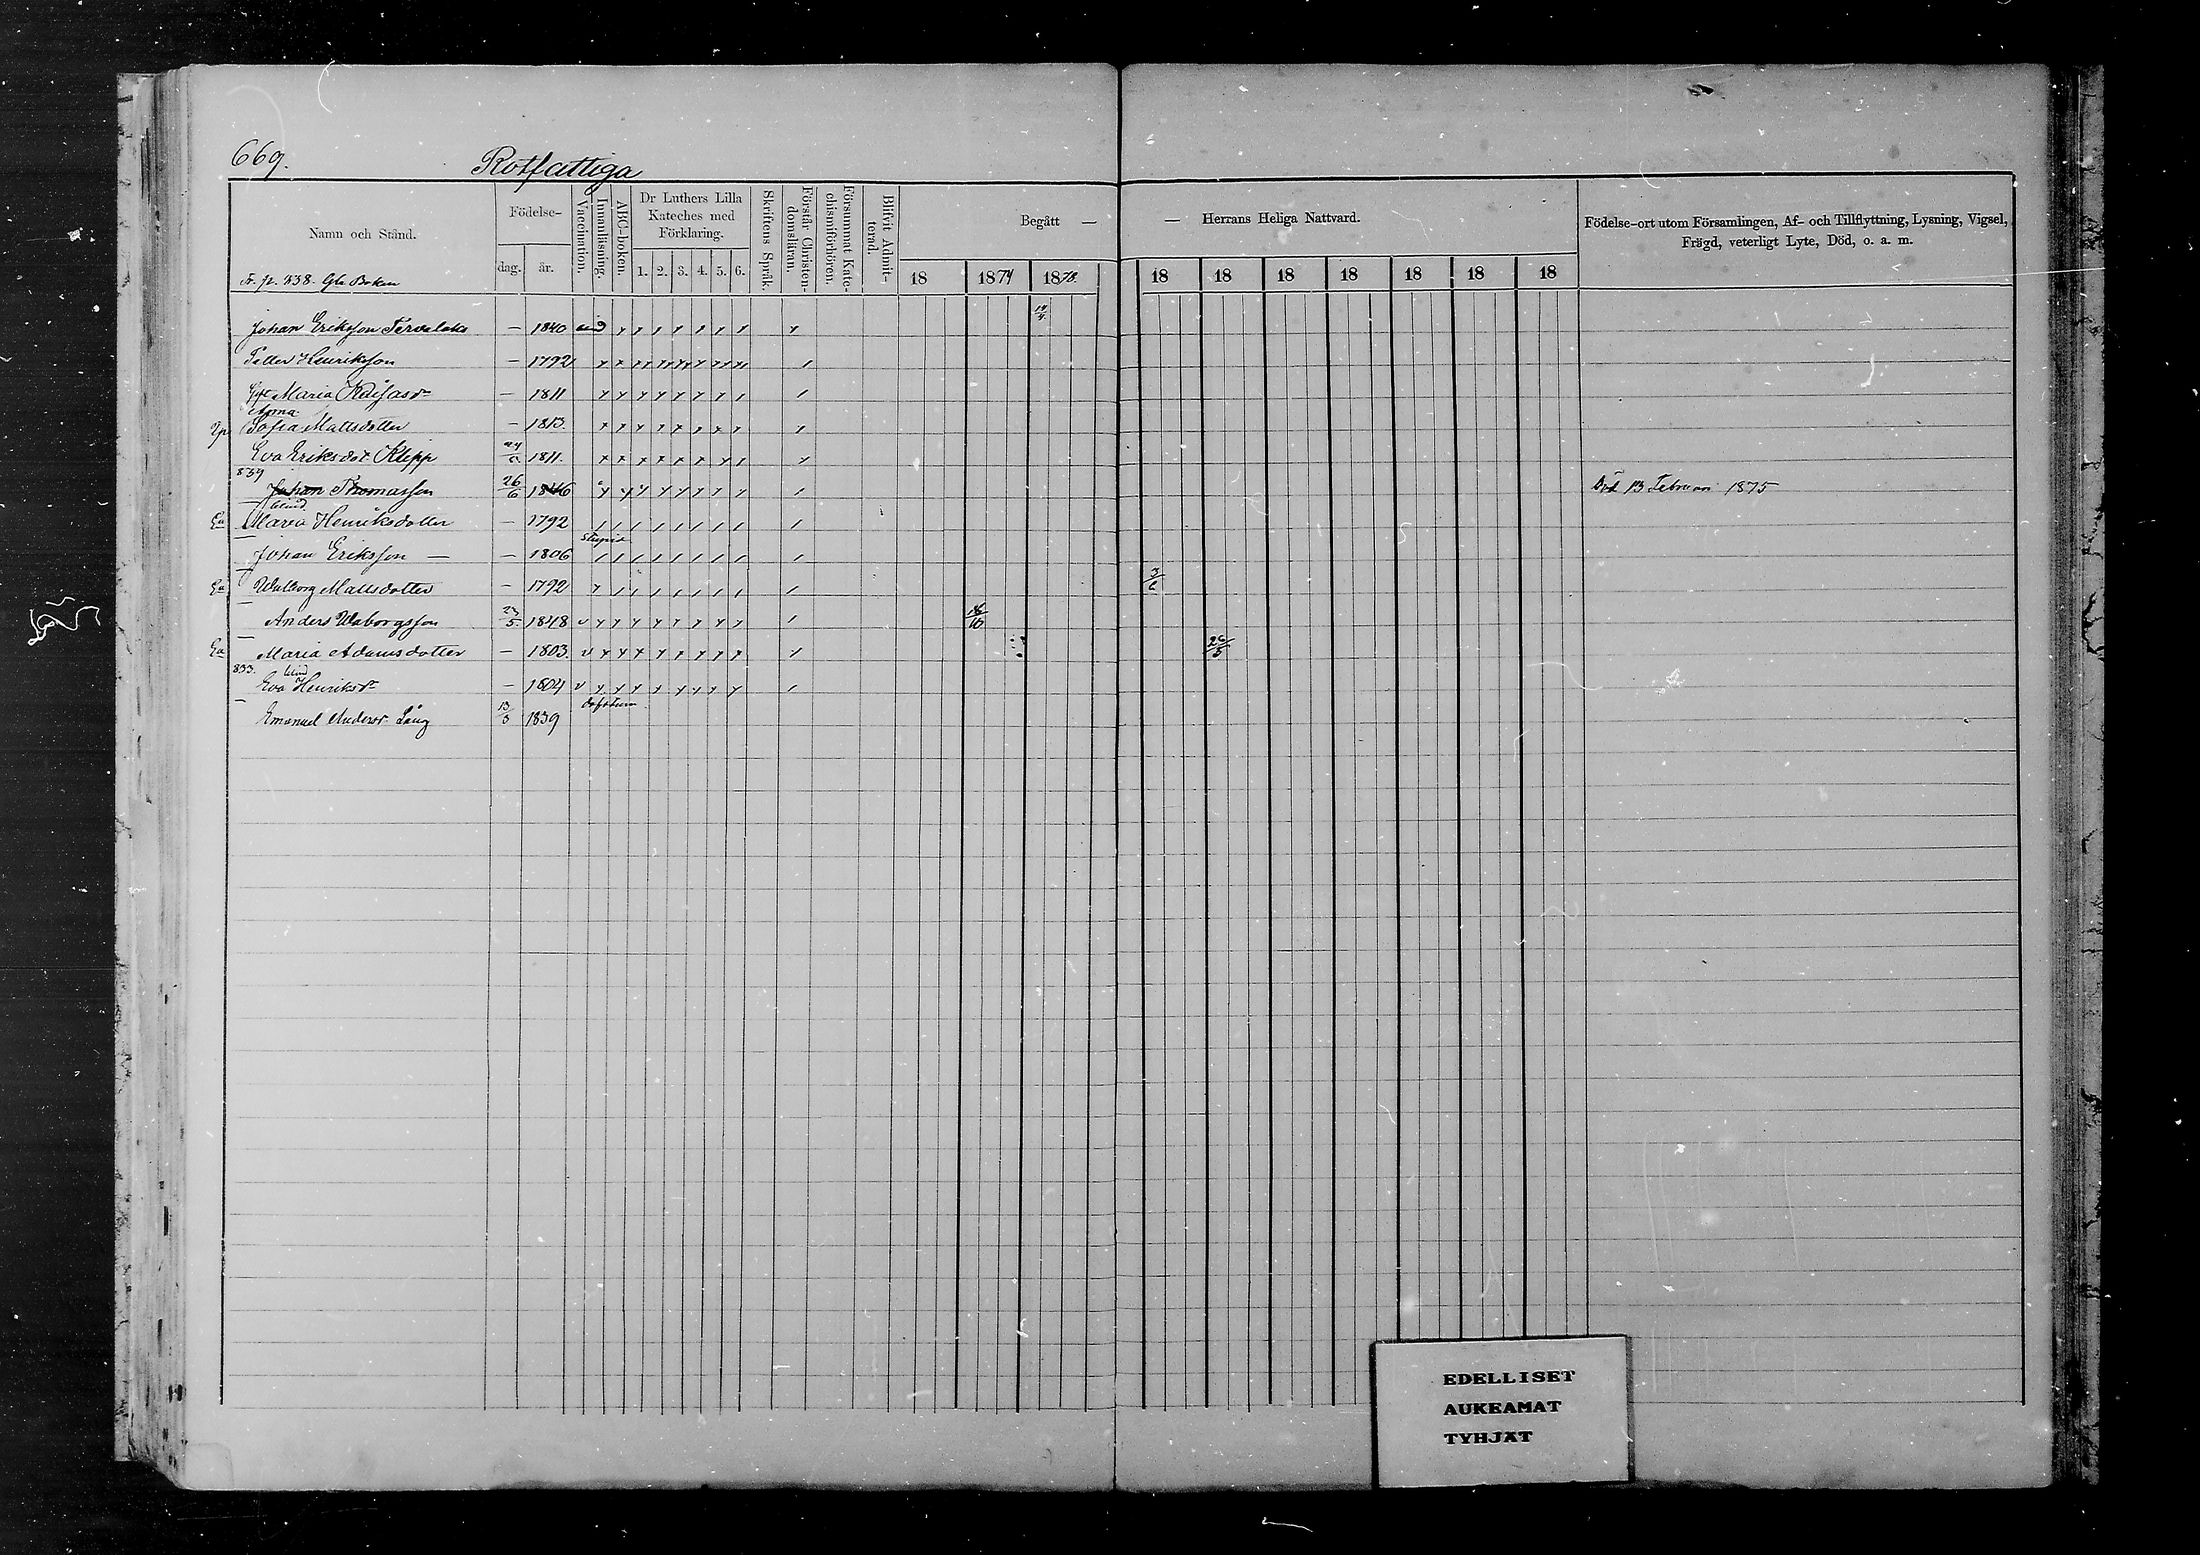 669.
Rotfattiga
Namn och Stånd.
Födelse-
dag.
år.
Vaccination.
Innanläsning.
ABC-boken.
Dr Luthers Lilla
Kateches med
Förklaring.
1. 2. 3. 4. 5. 6.
Skriftens Språk.
Förstår Christen-
domsläran.
Försummat Kate-
chismiförhören.
Blifvit Admit-
terad.
Begått — — Herrans Heliga Nattvard.
18 1874 1878. 18 18 18 18 18 18 18
Födelse-ort utom Församlingen, Af- och Tillflyttning, Lysning, Vigsel,
Frägd, veterligt Lyte, Död, o. a. m.
Fr. p. 838. Gla Boken
Johan Eriksson — 1840 14/4
Petter Henriksson — 1792
Maria — 1811
Sofia Mattsdotter — 1813.
Eva Eriksdot. Klipp 1811.
839
Johan Thomasson 26/6 1846 Död 13 Februari 1875
blind
Maria Henriksdotter — 1792
Stupid
Johan Eriksson — — 1806
Walborg Mattsdotter — 1792 3/6
Anders Waborgsson 23/5 1848 18/10
Maria Adamsdotter — 1803. 26/5
833. blind
Eva Henriksdr — 1804
döfstum.
Emanuel Anderss. Lång 13/3 1839
EDELLISET
AUKEAMAT
TYHJÄT